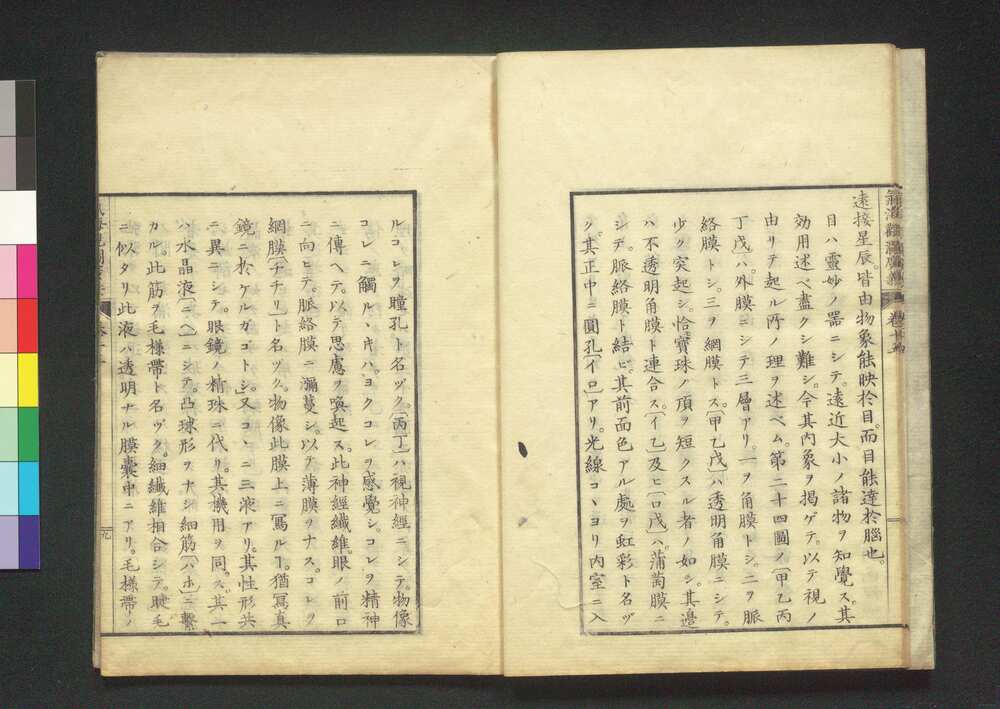 遠接星辰。皆由物象能映於目。而目能達於腦也。
目ハ靈妙ノ器ニシテ。遠近大小ノ諸物ヲ知覺ス。其
効用述ベ盡クシ難シ。今其內象ヲ揭ゲテ。以テ視ノ
由リテ起ル所ノ理ヲ述ベム。第二十四圖ノ〔甲乙丙
丁戊〕ハ。外膜ニシテ三層アリ。一ヲ角膜トシ。二ヲ脈
絡膜トシ。三ヲ網膜トス。〔甲乙戊〕ハ透明角膜ニシテ。
少ク突起シ。恰寶珠ノ頂ヲ短クスル者ノ如シ。其邉
ハ不透明角膜ト連合ス。〔イ乙〕及ヒ〔ロ戊〕ハ。蒲萄膜ニ
シテ。脈絡膜ト結ビ。其前面色アル處ヲ虹彩ト名ヅ
ク。其正中ニ圓孔〔イロ〕アリ。光線コヽヨリ內室ニ入
ルコレヲ瞳孔ト名ヅク。〔丙丁〕ハ視神經ニシテ。物像
コレニ觸ルヽ片ハ。ヨクコレヲ感覺シ。コレヲ精神
ニ傳ヘテ。以テ思慮ヲ喚起ス。此神經纖維。眼ノ前口
ニ向ヒテ。脈絡膜ニ瀰蔓シ。以テ薄膜ヲナス。コレヲ
網膜〔チチリ〕ト名ヅク。物像此膜上ニ寫ルヿ。猶寫眞
鏡ニ於ケルガコトシ」又コヽニ三液アリ。其性形共
ニ異ニシテ。眼鏡ノ精珠ニ代リ。其機用ヲ同ス。其一
ハ水晶液〔ニハ〕ニシテ。凸球形ヲナシ細筋〔ハホ〕ニ繫
カル。此筋ヲ毛樣帶ト名ヅク。細纖維相合シテ。睫毛
ニ似タリ此液ハ透明ナル膜囊中ニアリ。毛樣帶ノ